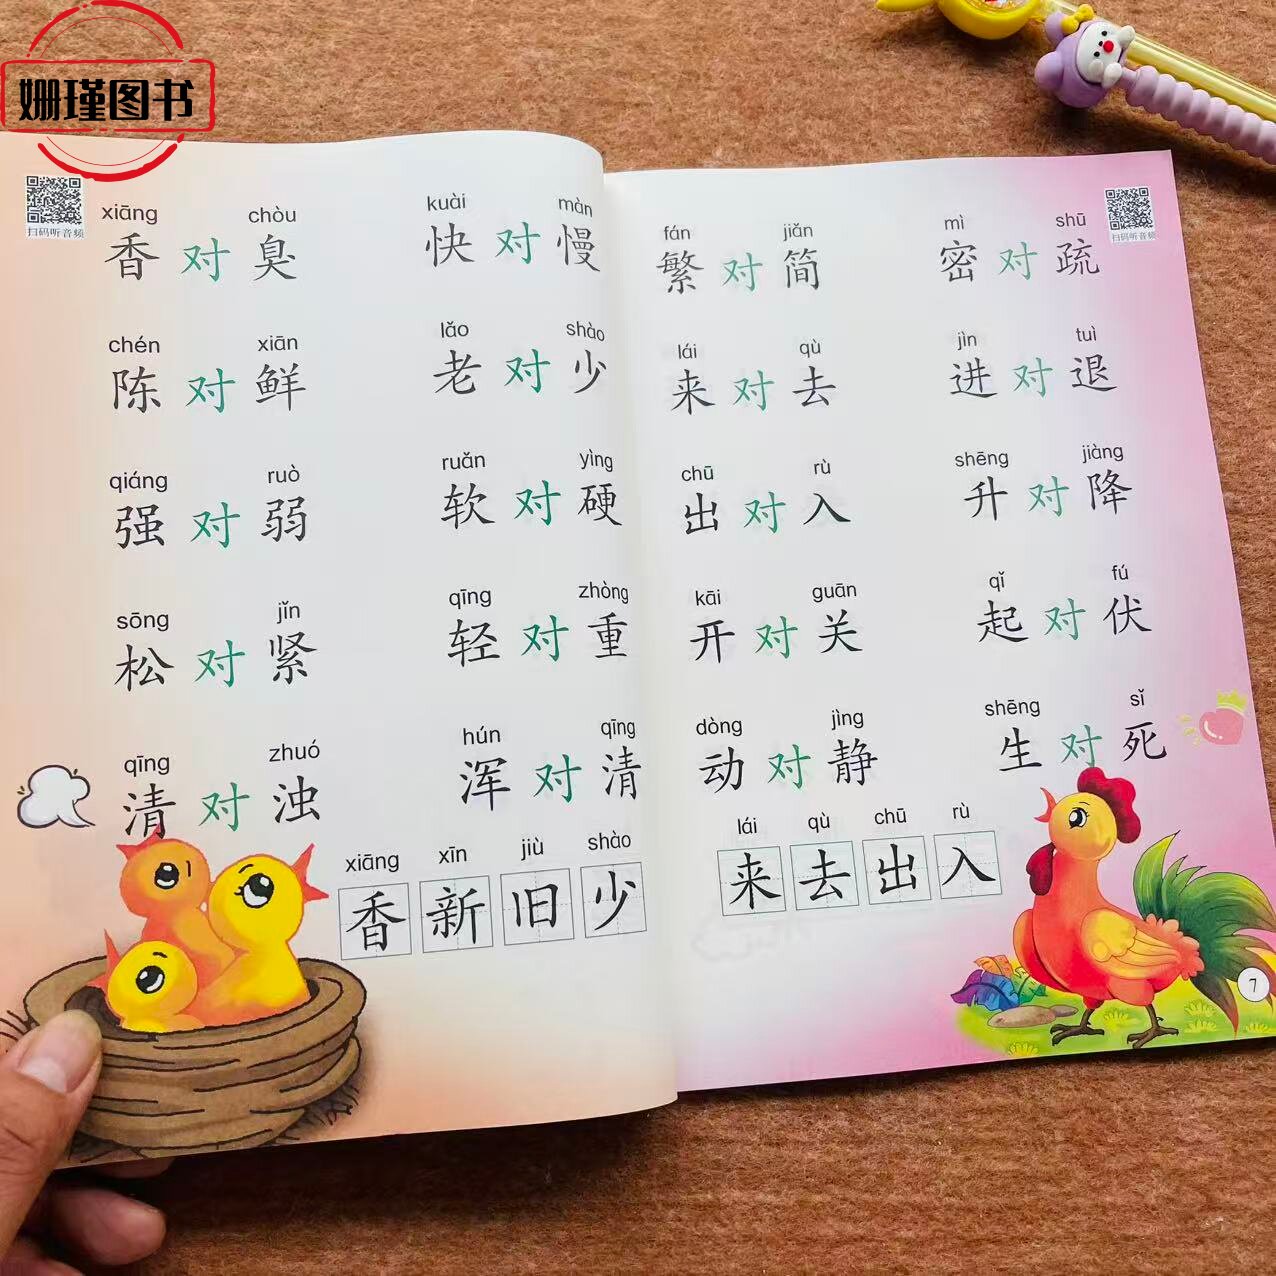 姗瑾图书
扫码听音频
xiāng chòu kuài màn
香对臭 快对慢
chén xiān lǎo shào
陈对鲜 老对少
qiáng ruò ruǎn yìng
强对弱 软对硬
sōng jǐn qīng zhòng
松对紧 轻对重
qīng zhuó hún qīng
清对浊 浑对清
xiāng xīn jiù shào
香新旧少
扫码听音频
fán jiǎn mì shū
繁对简 密对疏
lái qù jìn tuì
来对去 进对退
chū rù shēng jiàng
出对入 升对降
kāi guān qǐ fú
开对关 起对伏
dòng jìng shēng sǐ
动对静 生对死
lái qù chū rù
来去出入
7